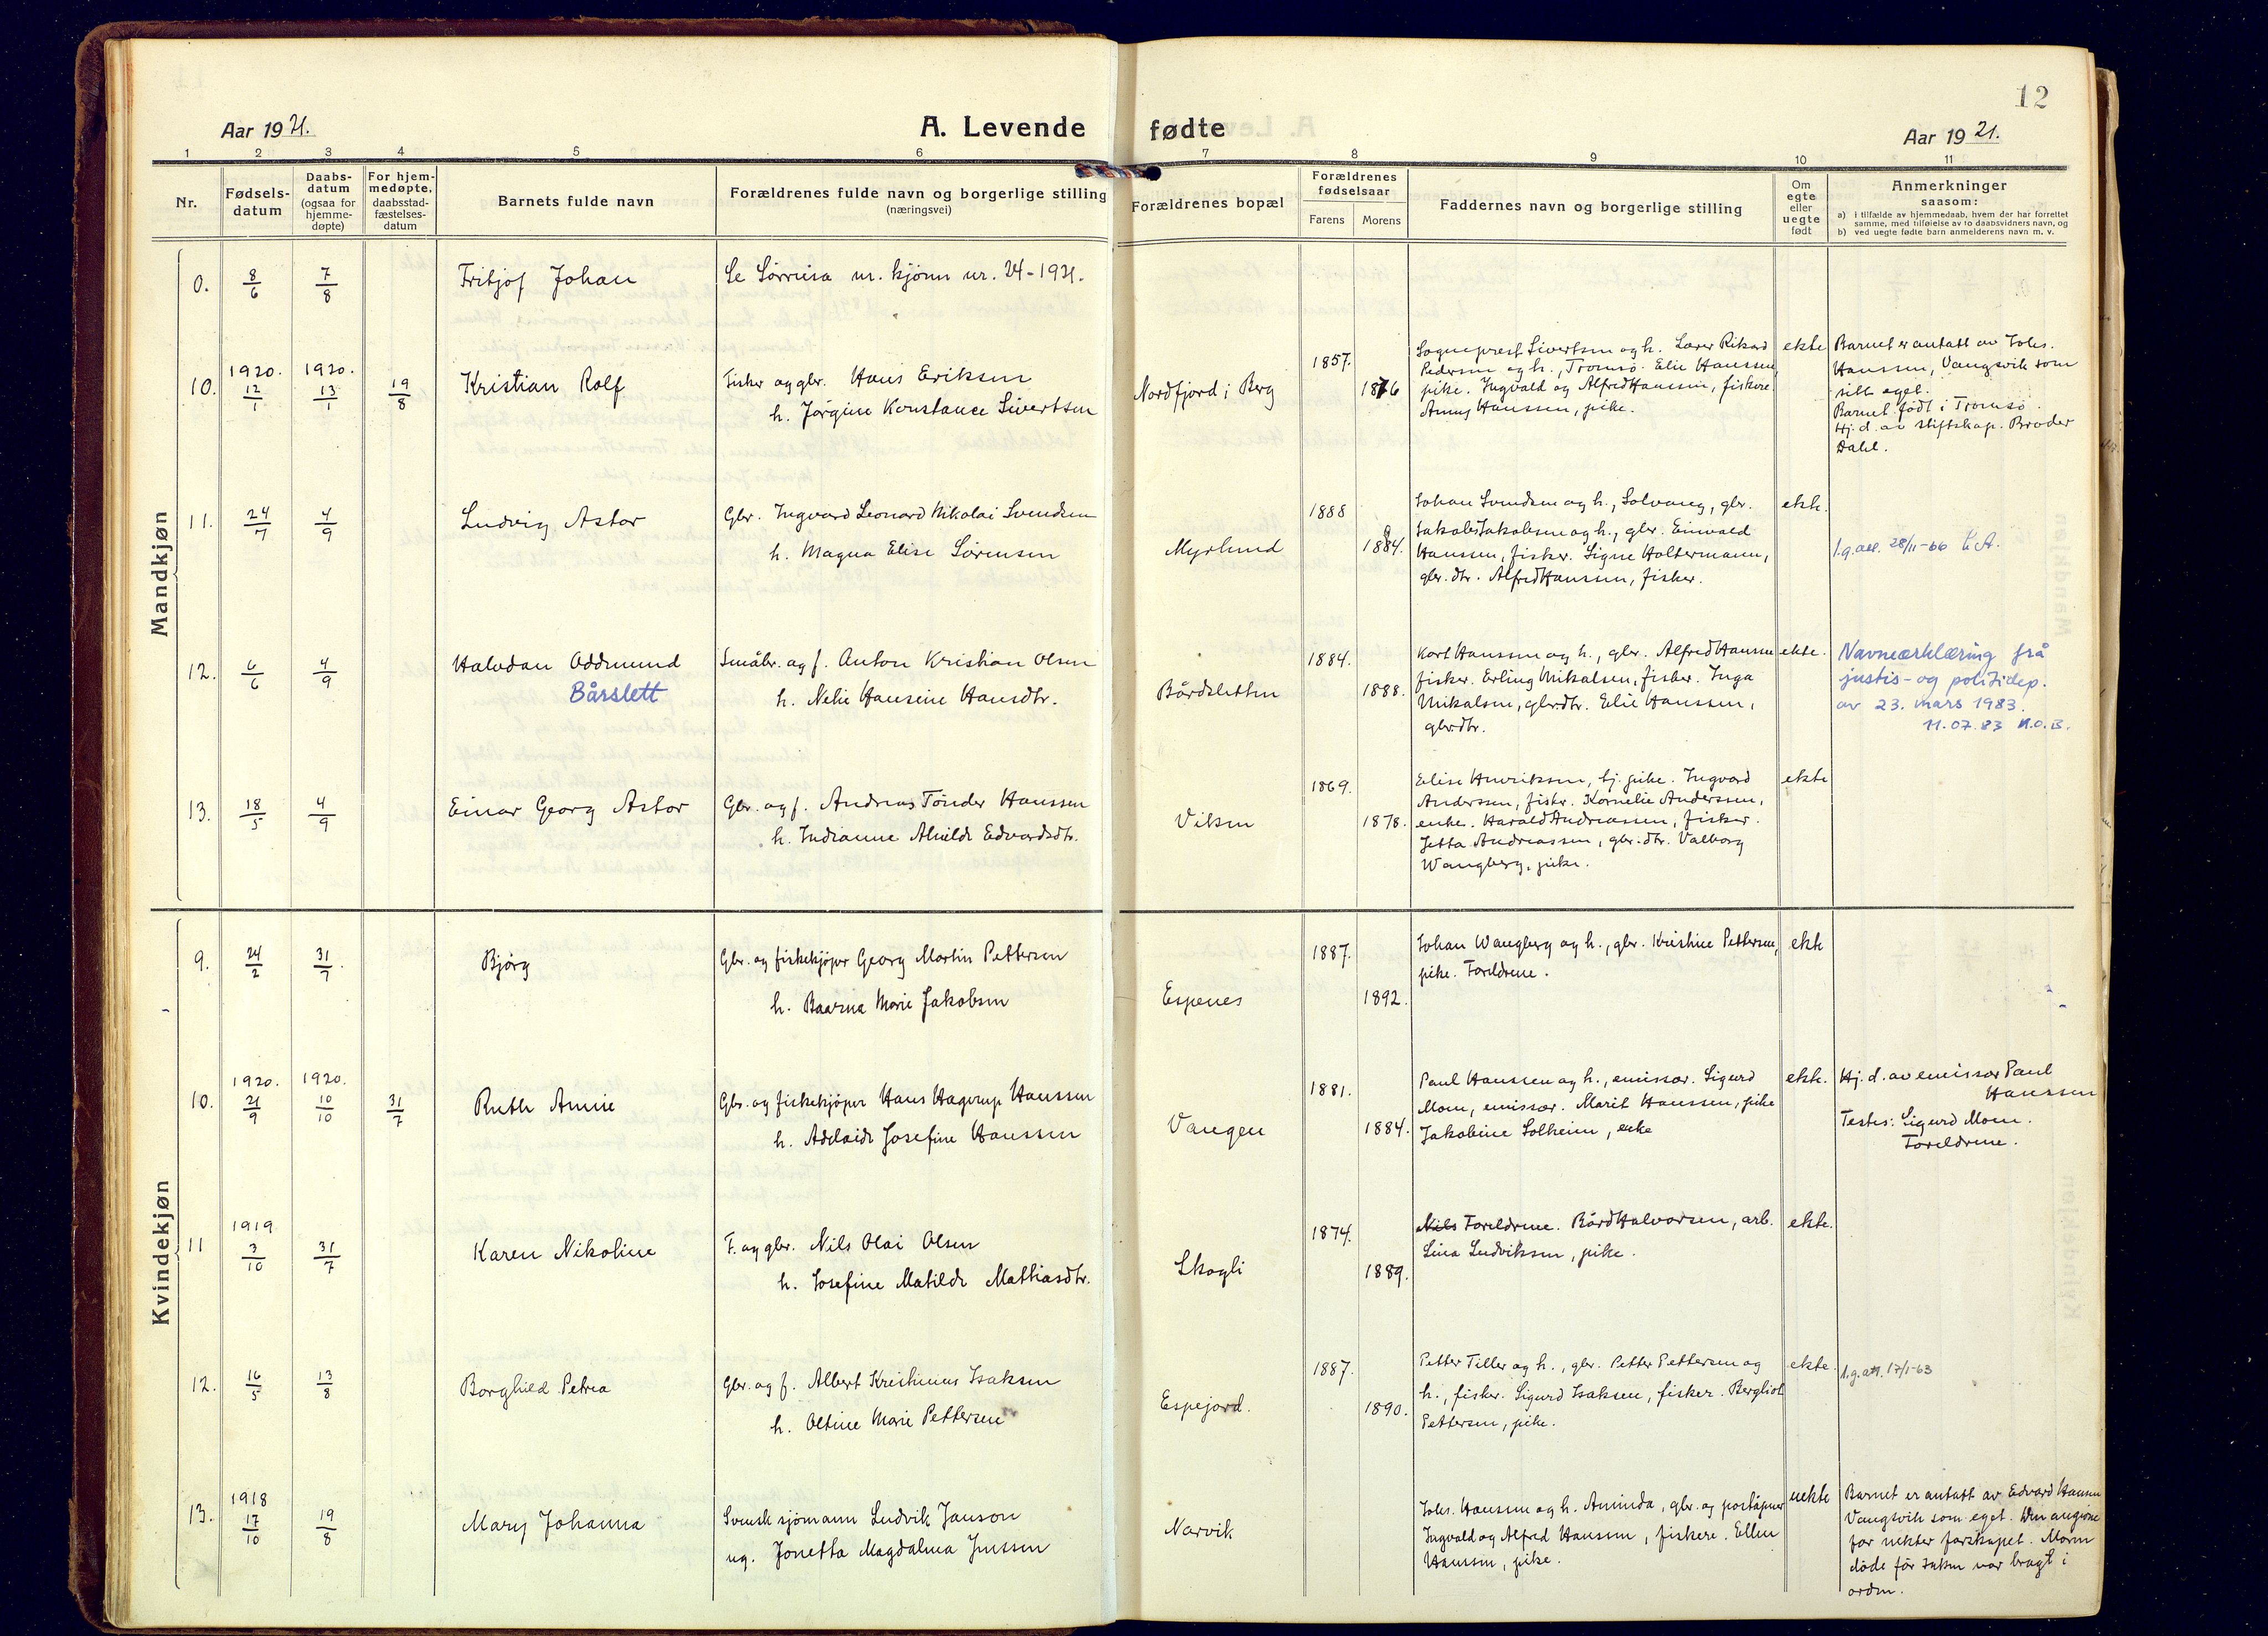 12
Aar 1921.
A. Levende fødte
Aar 1921.
1 2 3 4 5 6 7 8 9 10 11
Nr.
Fødsels-
datum
Daabs-
datum
(ogsaa for
hjemme-
døpte)
For hjem-
medøpte,
daabsstad-
fæstelses-
datum
Barnets fulde navn
Forældrenes fulde navn og borgerlige stilling
(næringsvei)
Forældrenes bopæl
Forældrenes
fødselsaar
Farens Morens
Faddernes navn og borgerlige stilling
Om
egte
eller
uegte
født
Anmerkninger
saasom:
a) i tilfælde av hjemmedaab, hvem der har forrettet
samme, med tilføielse av to daabsvidners navn, og
b) ved uegte fødte barn anmelderens navn m. v.
Mandkjøn
0. 8/6 7/8 Fritjof Johan
Se Sørreisa m. kjønn nr. 24-1921.
10. 1920. 12/1 1920. 13/1 19/8 Kristian Rolf
Fisker og gbr. Hans Eriksen
h. Jørgine Konstance Sivertsen
Nordfjord i Berg
1857.
1876
Sogneprest Sivertsen og h. Lærer Rikard
Pedersen og h., Tromsø. Elie Hanssen,
pike. Ingvald og Alfred Hanssen, fiskere.
Anny Hanssen, pike.
ekte
Barnet er antatt av Johs.
Hanssen, Vangsvik som
sitt eget.
Barnet født i Tromsø.
Hj. d. av stiftskap. Broder
Dahl.
11. 24/7 4/9 Ludvig Astor
Gbr. Ingvard Leonard Nikolai Svendsen
h. Magna Elise Sørensen
Myrlund
1888
1884.
Johan Svendsen og h., Solvang, gbr.
Jakob Jakobsen og h., gbr. Einvald
Hanssen, fisker. Signe Holtermann,
gbr. dtr. Alfred Hanssen, fisker.
ekte.
l.g.att. 28/11-66
12. 6/6 4/9 Halvdan Oddmund
Bårslett
Småbr. og f. Anton Kristian Olsen
h. Nelie Hansine Hansdtr.
Bårdsletten
1884.
1888.
Karl Hanssen og h., gbr. Alfred Hanssen
fisker. Erling Mikalsen, fisker. Inga
Mikalsen, gbr.dtr. Elie Hanssen,
gbr.dtr.
ekte.
Navneærklæring frå
justis- og politidep.
av 23. mars 1983.
11.07.83 N.O.B.
13. 18/5 4/9 Einar Georg Astor
Gbr. og f. Andreas Tønder Hanssen
h. Indianne Alvilde Edvardsdtr.
Viken
1869.
1878.
Elise Henriksen, tj. pike. Ingvard
Anderssen, fisker. Kornelie Anderssen,
enke. Harald Andreassen, fisker.
Jetta Andreassen, gbr. dtr. Valborg
Wangberg, pike.
ekte
Kvindekjøn
9. 24/2 31/7. Bjørg
Gbr. og fiskekjøper Georg Martin Pettersen
h. Baarna Marie Jakobsen
Espenes
1887.
1892.
Johan Wangberg og h., gbr. Kristine Pettersen,
pike. Foreldrene.
ekte
10. 1920. 21/9 1920. 10/10 31/7 Ruth Annie
Gbr. og fiskekjøper Hans Hagerup Hanssen
h. Adelaide Josefine Hanssen
Vangen
1881.
1884.
Paul Hanssen og h., emissær. Sigurd
Moen, emissær. Marit Hanssen, pike
Jakobine Solheim, enke
ekte.
Hj. d. av emissær Paul
Hanssen
Testes: Sigurd Moen.
Foreldrene.
11 1919 3/10 31/7 Karen Nikoline
F. og gbr. Nils Olai Olsen
h. Josefine Matilde Mathiasdtr.
Skogli
1874.
1889.
Nils Foreldrene. Bård Halvorsen, arb.
Lina Ludviksen, pike.
ekte.
12. 16/5 13/8 Borghild Petrea
Gbr. og f. Albert Kristinius Isaksen
h. Oltine Marie Pettersen
Espejord.
1887.
1890.
Petter Tiller og h., gbr. Petter Pettersen og
h., fisker. Sigurd Isaksen, fisker. Bergliot
Pettersen, pike.
ekte.
l.g.att. 17/1-63
13. 1918 17/10 19/8 Mary Johanna
Svensk sjømann Ludvik Janson
ug. Jonetta Magdalena Jenssen
Narvik
Johs. Hanssen og h. Aminda, gbr. og poståpner
Ingvald og Alfred Hanssen, fiskere. Ellen
Hanssen, pike.
uekte
Barnet er antatt av Edvard Hansen
Vangsvik som eget. Den angivne
far nekter farskapet. Moren
døde før saken var bragt i
orden.